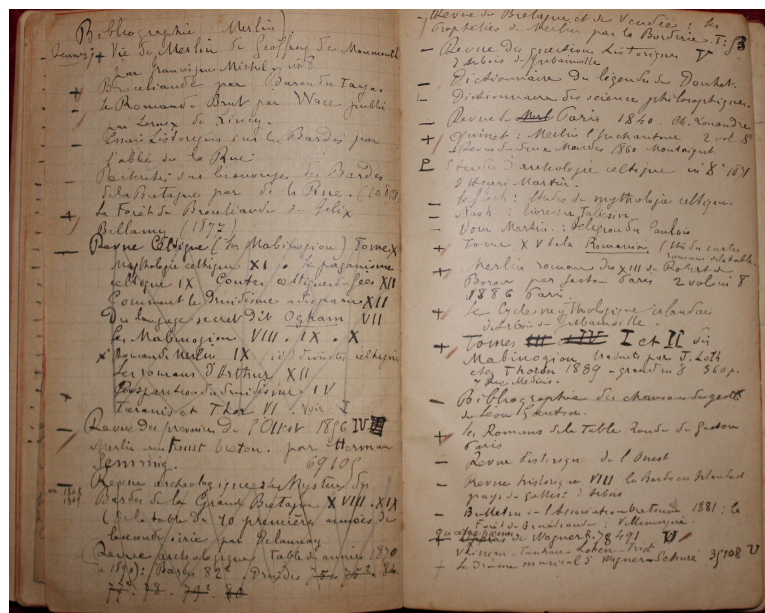 Bibliographie Merlin
+ Vie de Merlin de Geoffroy de Monmouth
par Francisque Michel. in 8
+ Brocéliande par Baron du Taya.
- Le Roman de Brut par Wace publié
par Leroux de Lincy.
- Essai historique sur les Bardes par
l'abbé de la Rue
- Recherches sur les ouvrages des Bardes
de la Bretagne par de la Rue.
+ La Forêt de Brocéliande de Felix
Bellamy (1897)
- Revue Celtique (les Mabinogion) Tome X
Mythologie celtique XI. le paganisme
celtique IX Contes celtiques de fées XII
Comment le Druidisme a disparu XII
Du langage secret dit Ogham VII
Les Mabinogion VIII. IX. X
x Roman de Merlin IX
Les romans d'Arthur XII
+ Disparition du druidisme IV
+ Taranis et Thor VI. Voir I
- Revue des provinces de l'Ouest 1856 IV
Merlin un Faust breton. par Herman
Semmig. 6910
- Revue archéologique Le Mystère des
Bardes de la Grande Bretagne XVIII. XIX
(de la table des 10 premières années de
la seconde série par Delaunay
(Revue archéologique table des années 1870
à 1890): (Bardes 82² - Druides 75 75² 86
77² 78. 79² 80
- Revue de Bretagne et de Vendée: les
Prophéties de Merlin par la Borderie. T: 53
- Revue des questions historiques V
d'Arbois de Jubainville
- Dictionnaire des légendes de Douhet.
- Dictionnaire des science philosophiques.
- Revue de Paris 1840. Ch. Louandre
+ Quinet: Merlin l'Enchanteur 2 vol. 8°
- Revue des Deux Mondes 1860 Montégut
E Etudes d'archéologie celtique in 8°
d'Henri Martin.
- Etudes de mythologie celtique.
- Nash: livre sur Taliesin
- Dom Martin: Religion des Gaulois
+ Tome XV de la Romania (étude sur les
romans de la table
+ Merlin roman du XIII de Robert de
Boron par Gaston Paris 2 vol in 8
1886 Paris.
+ Le Cycle mythologique irlandais
de d'Arbois de Jubainville.
+ Tomes III et IV I et II des
Mabinogion traduits par J. Loth
chez Thorin 1889 - grand in 8 360 p.
7 rue Médicis.
- Bibliographie des chansons de geste
de Léon Gautier.
+ Les Romans de la Table Ronde de Gaston
Paris
- Revue historique de l'Ouest
- Revue historique VIII le Barde en Irlande et
pays de Galles: d'Arbois
- Bulletin de l'Association bretonne 1881: la
Forêt de Brocéliande: Villemarqué.
quatre poèmes de Wagner. 78491 V
+ Le drame musical d' Wagner Schuré 35108 V